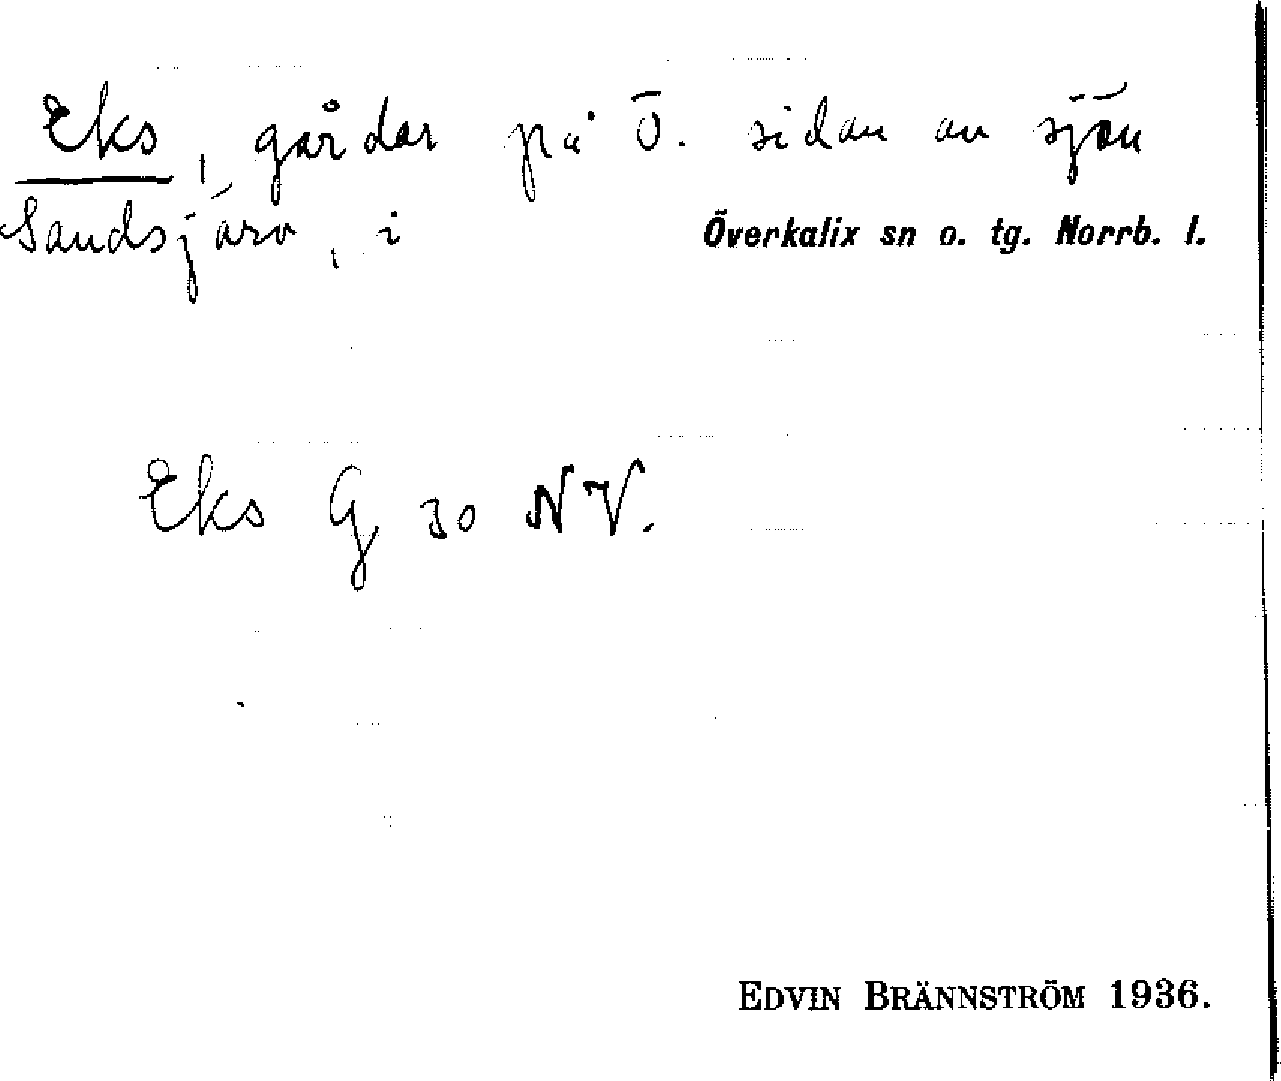 Eks, gårdar på Ö. sidan av sjön
Sandsjärv, i Överkalix sn o. tg. Norrb. l.
Eks G 30 NV.
EDVIN BRÄNNSTRÖM 1936.